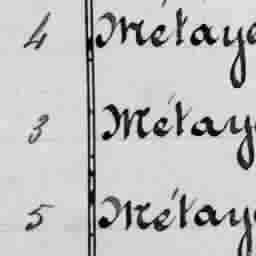 4 Métaye
3 Métay
5 Métay